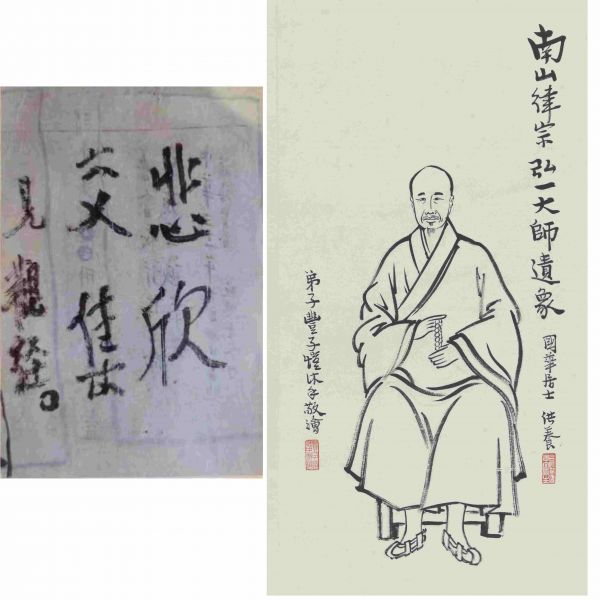 悲欣
交集
見觀經。
南山律宗弘一大師遺象
國華居士 供養
弟子豐子愷沐手敬繪